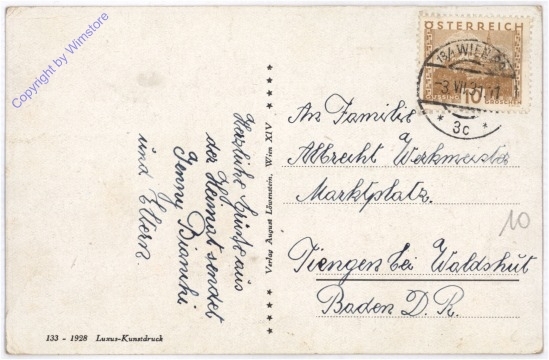 Copyright by Wimstore
Herzliche Grüße aus
der Heimat sendet
Jenny Bianchi
und Eltern
Verlag August Löwenstein, Wien XIV
133 - 1928 Luxus-Kunstdruck
ÖSTERREICH
10
GROSCHEN
WIEN
3c
An Familie
Albrecht Werkmeister
Marktplatz.
Tiengen bei Waldshut
Baden D. R.
10